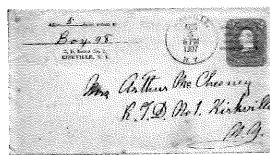 5
Box 98
KIRKVILLE, N. Y.
1907
N.Y.
Mrs Arthur McChesney
R.F.D. No1. Kirkville
N.Y.